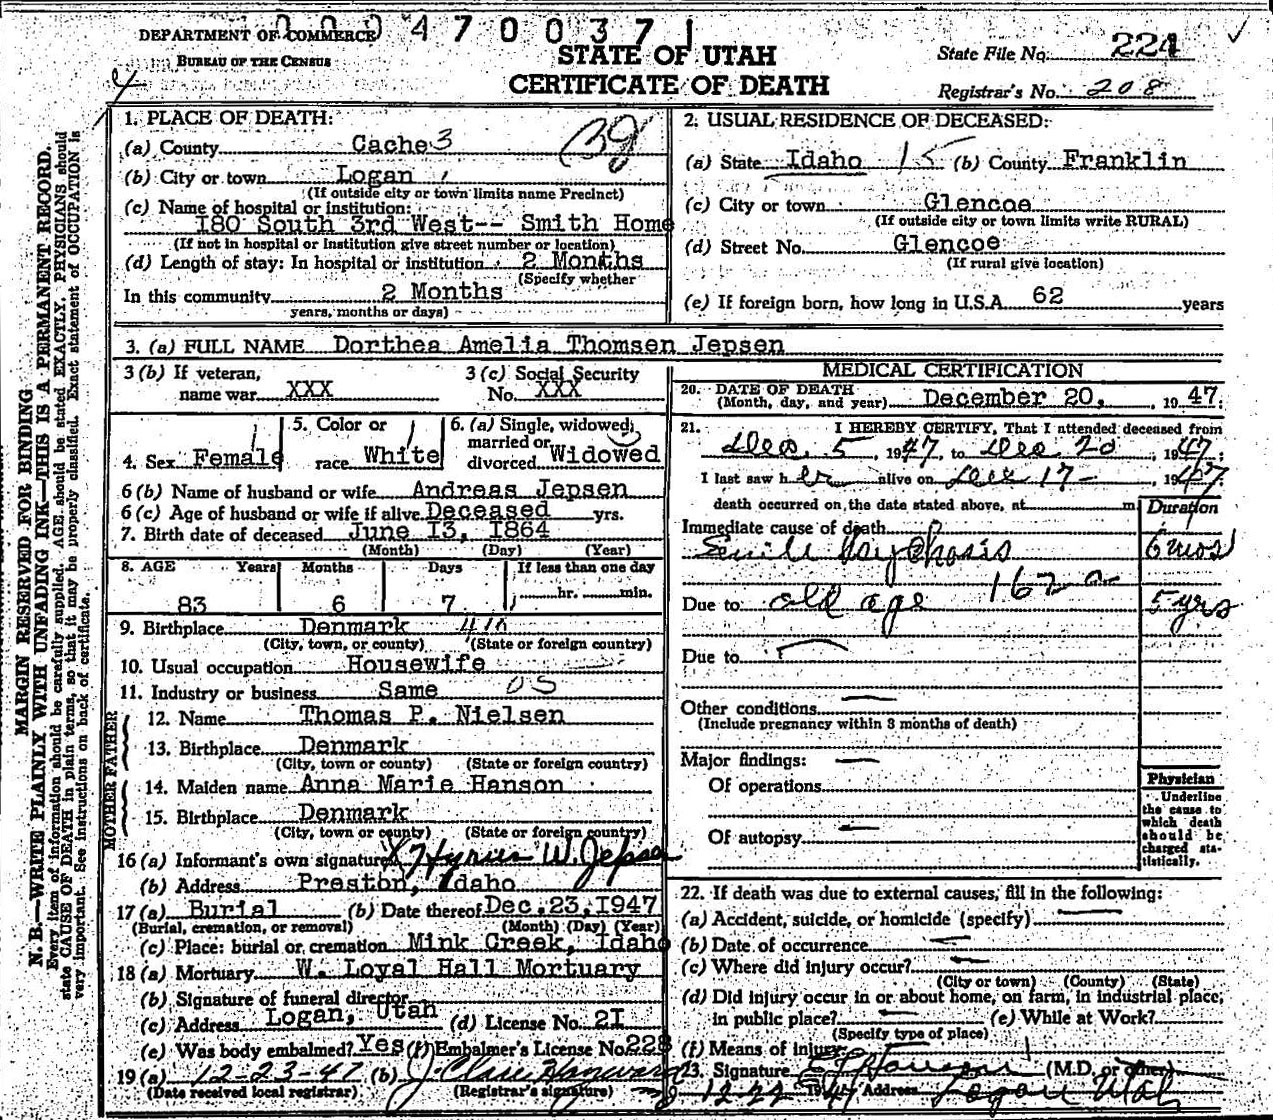 004700371
DEPARTMENT OF COMMERCE
BUREAU OF THE CENSUS
STATE OF UTAH
CERTIFICATE OF DEATH
State File No. 224
Registrar's No. 208
MARGIN RESERVED FOR BINDING
N. B.—WRITE PLAINLY WITH UNFADING INK—THIS IS A PERMANENT RECORD.
Every item of information should be carefully supplied. AGE should be stated EXACTLY. PHYSICIANS should
state CAUSE OF DEATH in plain terms, so that it may be properly classified. Exact statement of OCCUPATION is
very important. See instructions on back of certificate.
1. PLACE OF DEATH:
(a) County Cache 3
(b) City or town Logan
(If outside city or town limits name Precinct)
(c) Name of hospital or institution:
180 South 3rd West-- Smith Home
(If not in hospital or institution give street number or location)
(d) Length of stay: In hospital or institution 2 Months
(Specify whether
In this community 2 Months
years, months or days)
2. USUAL RESIDENCE OF DECEASED:
(a) State Idaho 15 (b) County Franklin
(c) City or town Glencoe
(If outside city or town limits write RURAL)
(d) Street No. Glencoe
(If rural give location)
(e) If foreign born, how long in U.S.A. 62 years
3. (a) FULL NAME Dorthea Amelia Thomsen Jepsen
3 (b) If veteran, name war XXX
3 (c) Social Security No. XXX
4. Sex Female
5. Color or race White
6. (a) Single, widowed, married or divorced Widowed
6 (b) Name of husband or wife Andreas Jepsen
6 (c) Age of husband or wife if alive Deceased yrs.
7. Birth date of deceased June 13, 1864
(Month) (Day) (Year)
8. AGE Years Months Days If less than one day
83 6 7 hr. min.
9. Birthplace Denmark
(City, town, or county) (State or foreign country)
10. Usual occupation Housewife
11. Industry or business Same 05
FATHER
12. Name Thomas P. Nielsen
13. Birthplace Denmark
(City, town or county) (State or foreign country)
MOTHER
14. Maiden name Anna Marie Hanson
15. Birthplace Denmark
(City, town or county) (State or foreign country)
16 (a) Informant's own signature X Hyrum W. Jepsen
(b) Address Preston, Idaho
17 (a) Burial (b) Date thereof Dec. 23, 1947
(Burial, cremation, or removal) (Month) (Day) (Year)
(c) Place: burial or cremation Mink Creek, Idaho
18 (a) Mortuary W. Loyal Hall Mortuary
(b) Signature of funeral director
(c) Address Logan, Utah (d) License No. 21
(e) Was body embalmed? Yes (f) Embalmer's License No. 228
19 (a) 12-23-47 (b)
(Date received local registrar) (Registrar's signature)
MEDICAL CERTIFICATION
20. DATE OF DEATH
(Month, day, and year) December 20, 1947.
21. I HEREBY CERTIFY, That I attended deceased from
Dec. 5 1947, to Dec 20, 1947.
I last saw her alive on Dec 17 - 1947
death occurred on the date stated above, at m. Duration
Immediate cause of death
Senile Psychosis 6 mos
162 a
Due to old age 5 yrs
Due to
Other conditions
(Include pregnancy within 3 months of death)
Major findings:
Of operations
Of autopsy
Physician
Underline
the cause to
which death
should be
charged sta-
tistically.
22. If death was due to external causes, fill in the following:
(a) Accident, suicide, or homicide (specify)
(b) Date of occurrence
(c) Where did injury occur?
(City or town) (County) (State)
(d) Did injury occur in or about home, on farm, in industrial place,
in public place? (e) While at Work?
(Specify type of place)
(f) Means of injury
23. Signature (M.D. or other)
12-22 1947 Address Logan Utah